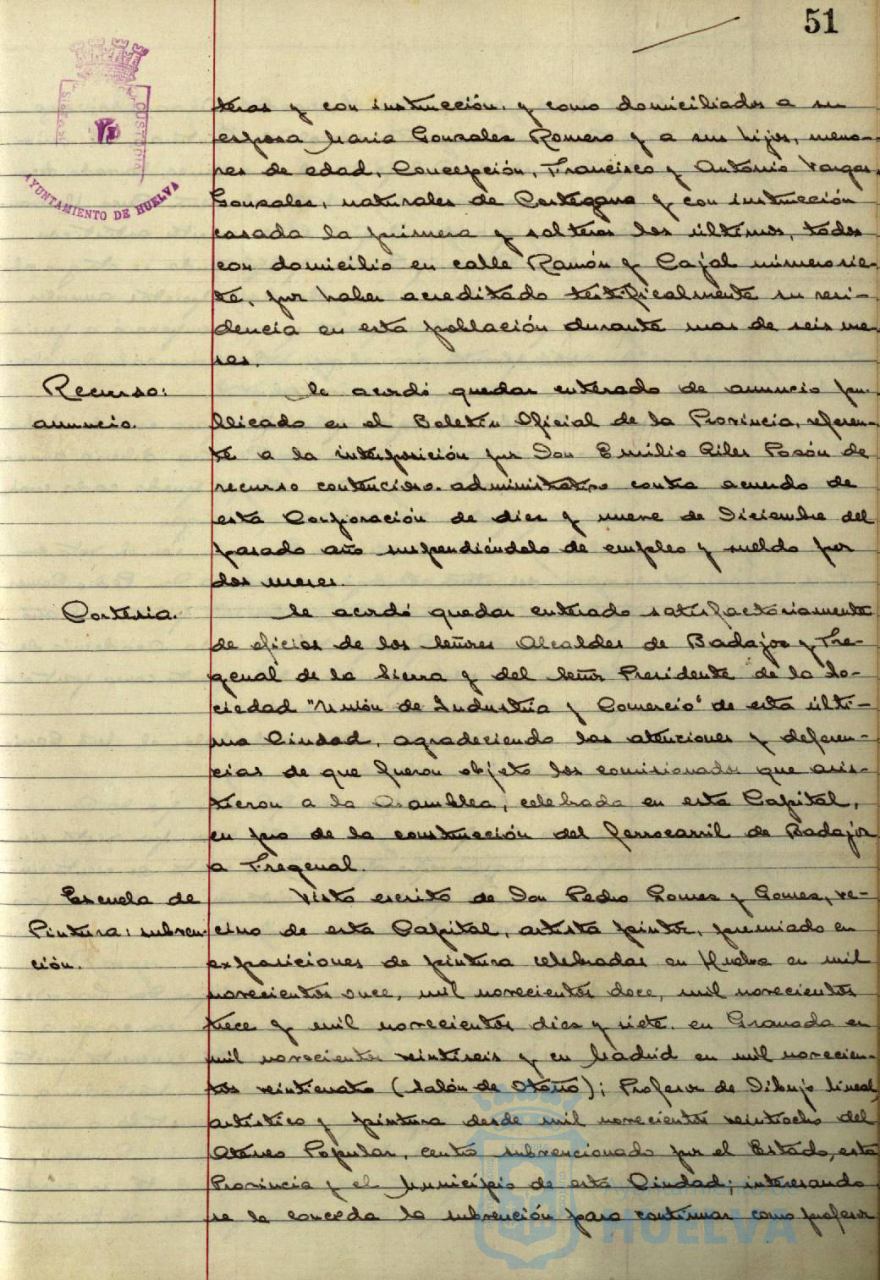 51
CUSTODIA
AYUNTAMIENTO DE HUELVA
teros y con instrucción. y como domiciliados a su
esposa María Gonzales Romero y a sus hijos, meno-
res de edad, Concepción, Francisco y Antonio Vargas
Gonzales, naturales de Cortegana y con instrucción
casada la primera y solteros los últimos, todos
con domicilio en calle Ramón y Cajal número sie-
te, por haber acreditado testificalmente su resi-
dencia en esta población durante mas de seis me-
ses.
Recurso:
anuncio.
Se acordó quedar enterado de anuncio pu-
blicado en el Boletín Oficial de la Provincia, referen-
te a la interposición por Don Emilio Giles Posón de
recurso contencioso-administrativo contra acuerdo de
esta Corporación de dies y nueve de Diciembre del
pasado año suspendiéndolo de empleo y sueldo por
dos meses.
Cortesia.
Se acordó quedar enterado satisfactoriamente
de oficios de los señores Alcaldes de Badajos y Fre-
genal de la Sierra y del señor Presidente de la So-
ciedad "Unión de Industria y Comercio" de esta últi-
ma Ciudad, agradeciendo las atenciones y deferen-
cias de que fueron objeto los comisionados que asis-
tieron a la Asamblea, celebrada en esta Capital,
en pro de la construcción del ferrocarril de Badajos
a Fregenal.
Escuela de
Pintura: subven-
ción.
Visto escrito de Don Pedro Gomes y Gomes, ve-
cino de esta Capital, artista pintor, premiado en
exposiciones de pintura celebradas en Huelva en mil
novecientos once, mil novecientos doce, mil novecientos
trece y mil novecientos dies y siete. en Granada en
mil novecientos veintiseis y en Madrid en mil novecien-
tos veinticuatro (Salón de Otoño); Profesor de Dibujo lineal,
artístico y pintura desde mil novecientos veintiocho del
Ateneo Popular, centro subvencionado por el Estado, esta
Provincia y el Municipio de esta Ciudad; interesando
se le conceda la subvención para continuar como profesor
HUELVA